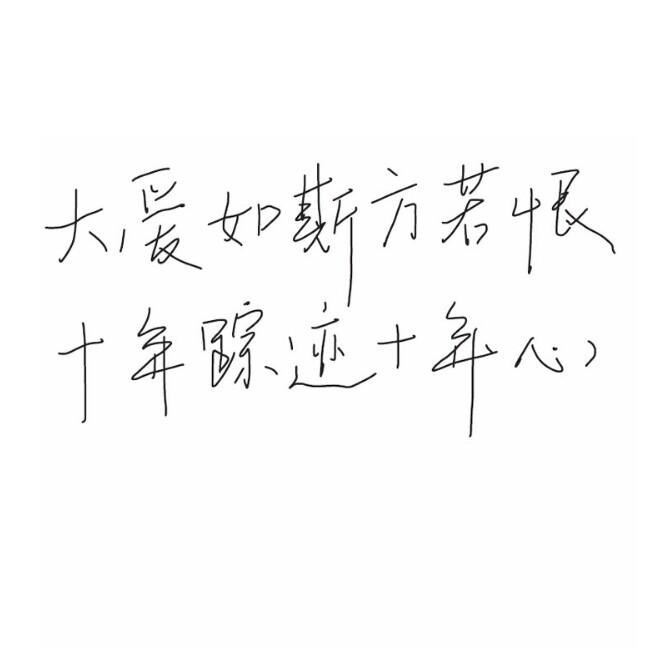 大爱如斯方若恨
十年踪迹十年心